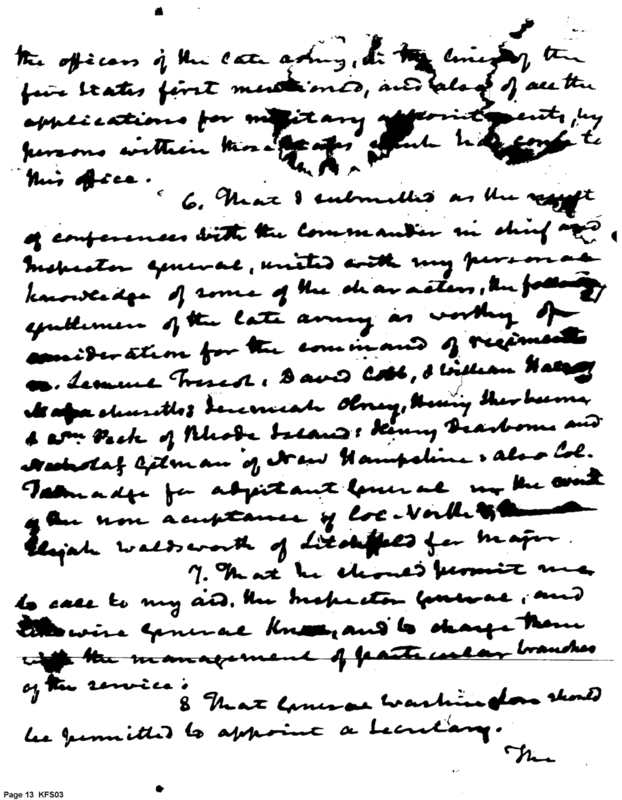 the officers of the late army, in the lines of the
five States first mentioned, and also of all the
applications for military appointments, by
persons within those States which had come to
this office.
6. That I submitted as the result
of conferences with the Commander in chief and
Inspector General, united with my personal
knowledge of some of the characters, the following
gentlemen of the late army as worthy of
consideration for the command of regiments
Lemuel Trescot, David Cobb, & William Hull of
Massachusetts; Jeremiah Olney, Henry Sherburne
& Wm Peck of Rhode Island: Henry Dearborne and
Nicholas Gilman of New Hampshire: also Col.
Talmadge for adjutant General in the event
of the non acceptance of Col. North &
Elijah Waldsworth of Litchfield for Major.
7. That he should permit me
to call to my aid, the Inspector General, and
likewise General Knox, and to charge them
with the management of particular branches
of the service:
8 That General Washington should
be permitted to appoint a Secretary.
The
Page 13 KFS03